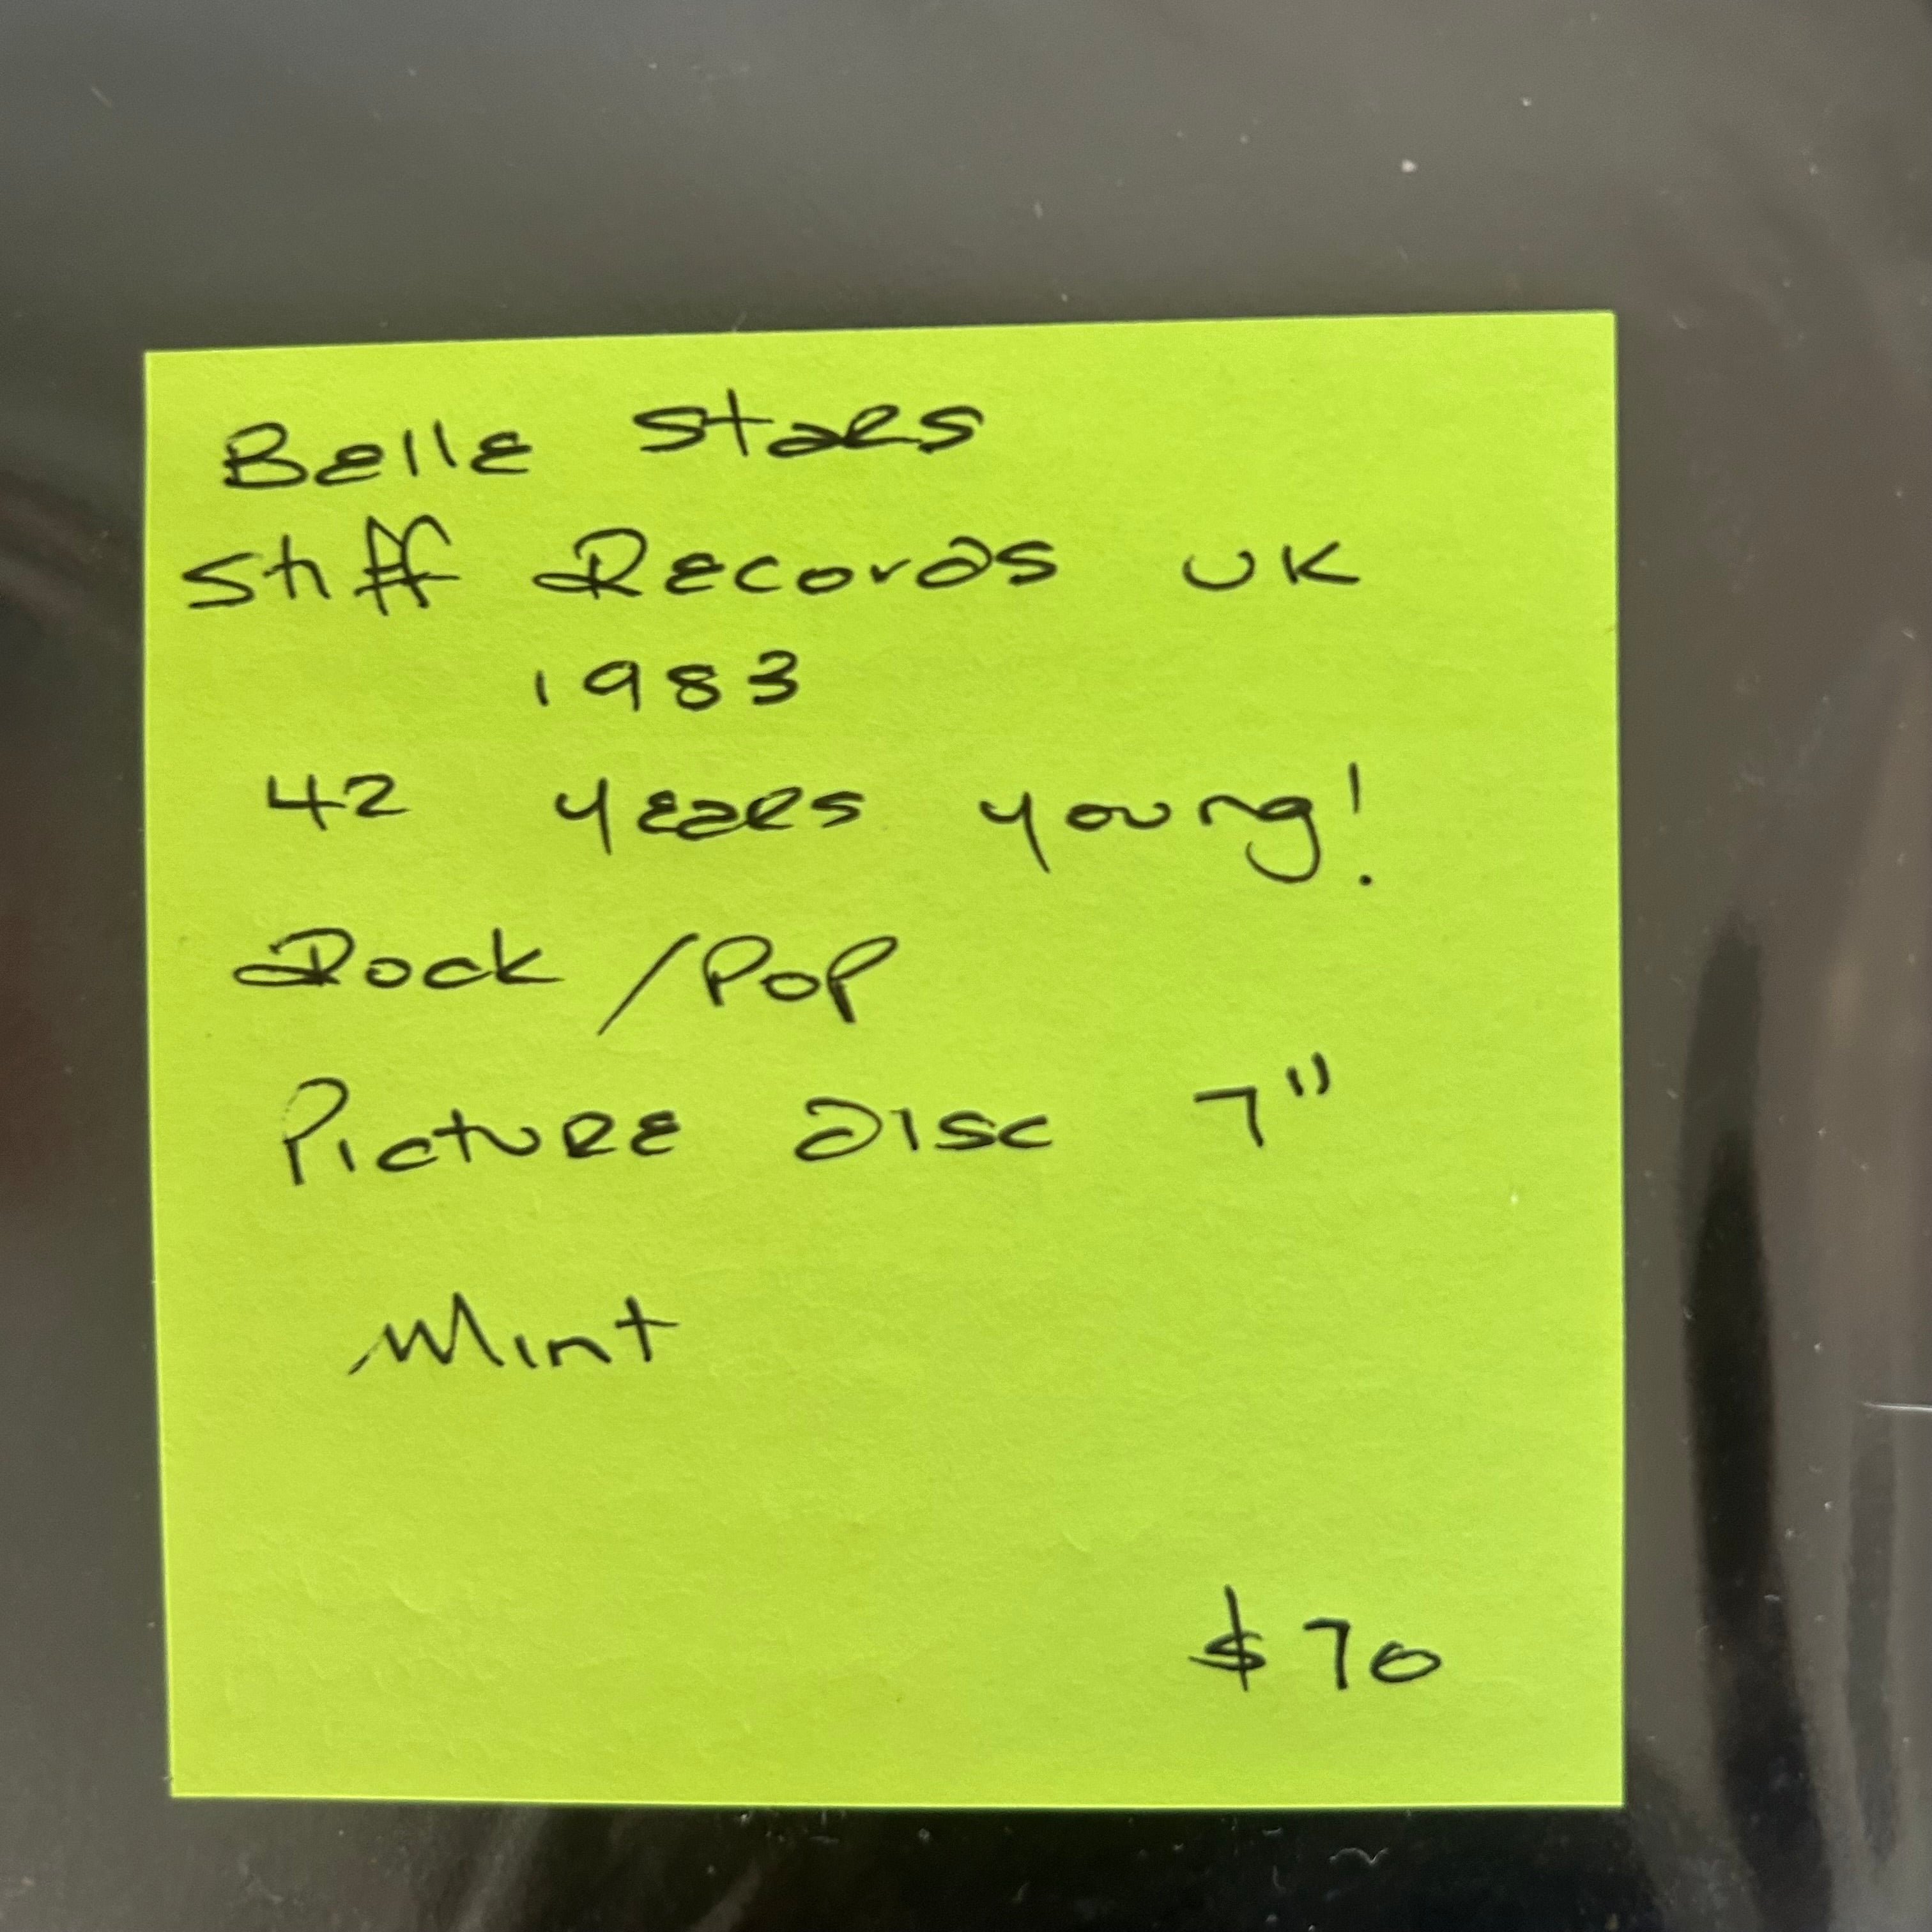 Belle Stars
Stiff Records UK
1983
42 years young!
Rock / Pop
Picture disc 7"
Mint
$70